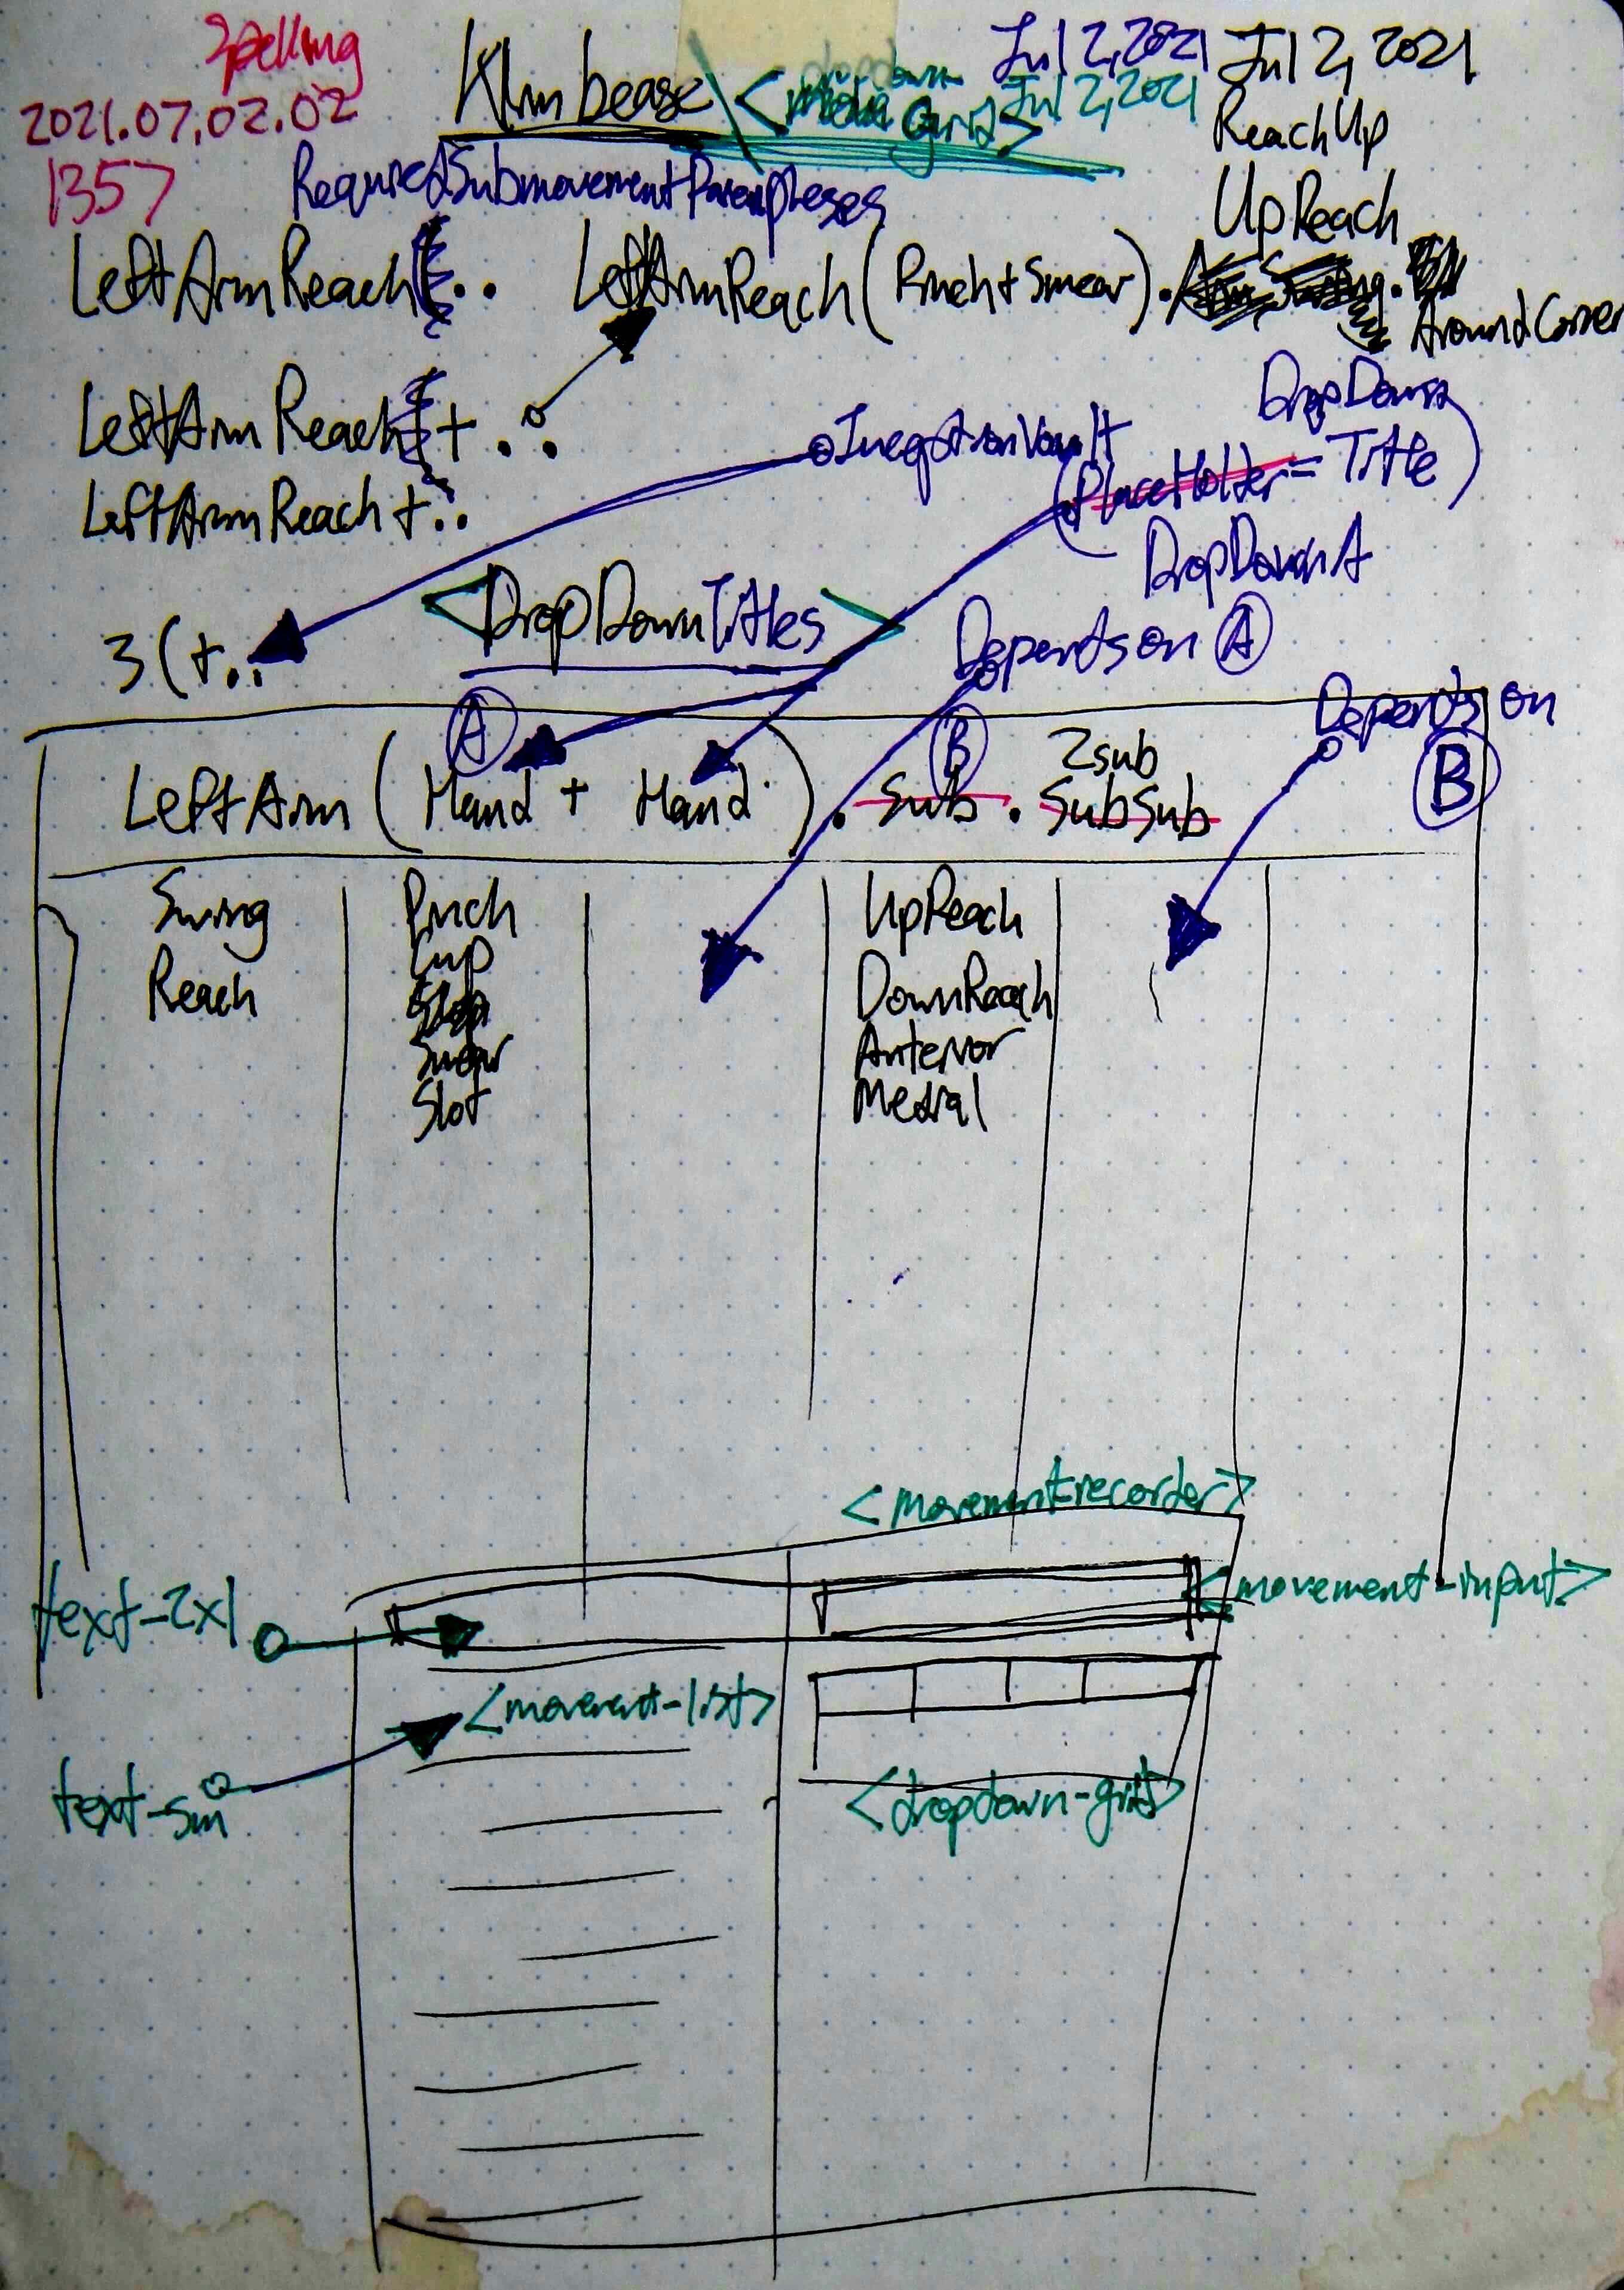 Spelling
2021.07.02.02
1357
Jul 2, 2021
Jul 2, 2021
Jul 2, 2021
dropdown
Grid>
ReachUp
UpReach
LeftArmReach
..
LeftArmReach(Pinch+Smear).
AroundCorner
LeftArmReach
+ ..
LeftArmReach+..
DropDown
(PlaceHolder=Title)
DropDown A
3(+..
<DropDownTitles>
Depends on A
Depends on
B
A
B
2sub
LeftArm (Hand + Hand).Sub.SubSub
Swing
Reach
Pinch
Cup
Smear
Slot
UpReach
DownReach
Anterior
Medial
<movement-recorder>
text-2xl
<movement-input>
<movement-list>
text-sm
<dropdown-grid>